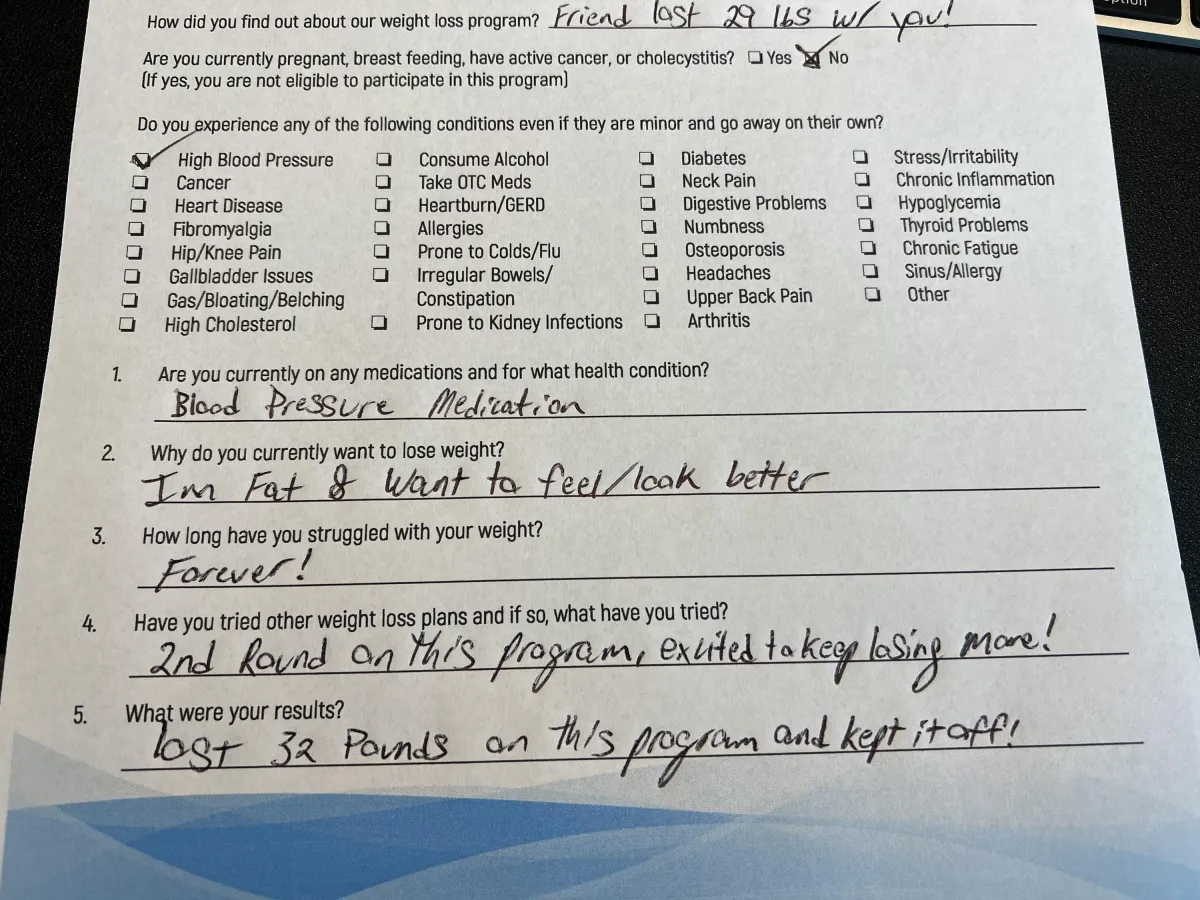 ption
How did you find out about our weight loss program? Friend lost 29 lbs w/ you!
Are you currently pregnant, breast feeding, have active cancer, or cholecystitis? Yes No
(If yes, you are not eligible to participate in this program)
Do you experience any of the following conditions even if they are minor and go away on their own?
High Blood Pressure Consume Alcohol Diabetes Stress/Irritability
Cancer Take OTC Meds Neck Pain Chronic Inflammation
Heart Disease Heartburn/GERD Digestive Problems Hypoglycemia
Fibromyalgia Allergies Numbness Thyroid Problems
Hip/Knee Pain Prone to Colds/Flu Osteoporosis Chronic Fatigue
Gallbladder Issues Irregular Bowels/ Headaches Sinus/Allergy
Gas/Bloating/Belching Constipation Upper Back Pain Other
High Cholesterol Prone to Kidney Infections Arthritis
1. Are you currently on any medications and for what health condition?
Blood Pressure Medication
2. Why do you currently want to lose weight?
Im Fat & Want to feel/look better
3. How long have you struggled with your weight?
Forever!
4. Have you tried other weight loss plans and if so, what have you tried?
2nd Round on this program, excited to keep losing more!
5. What were your results?
lost 32 Pounds on this program and kept it off!